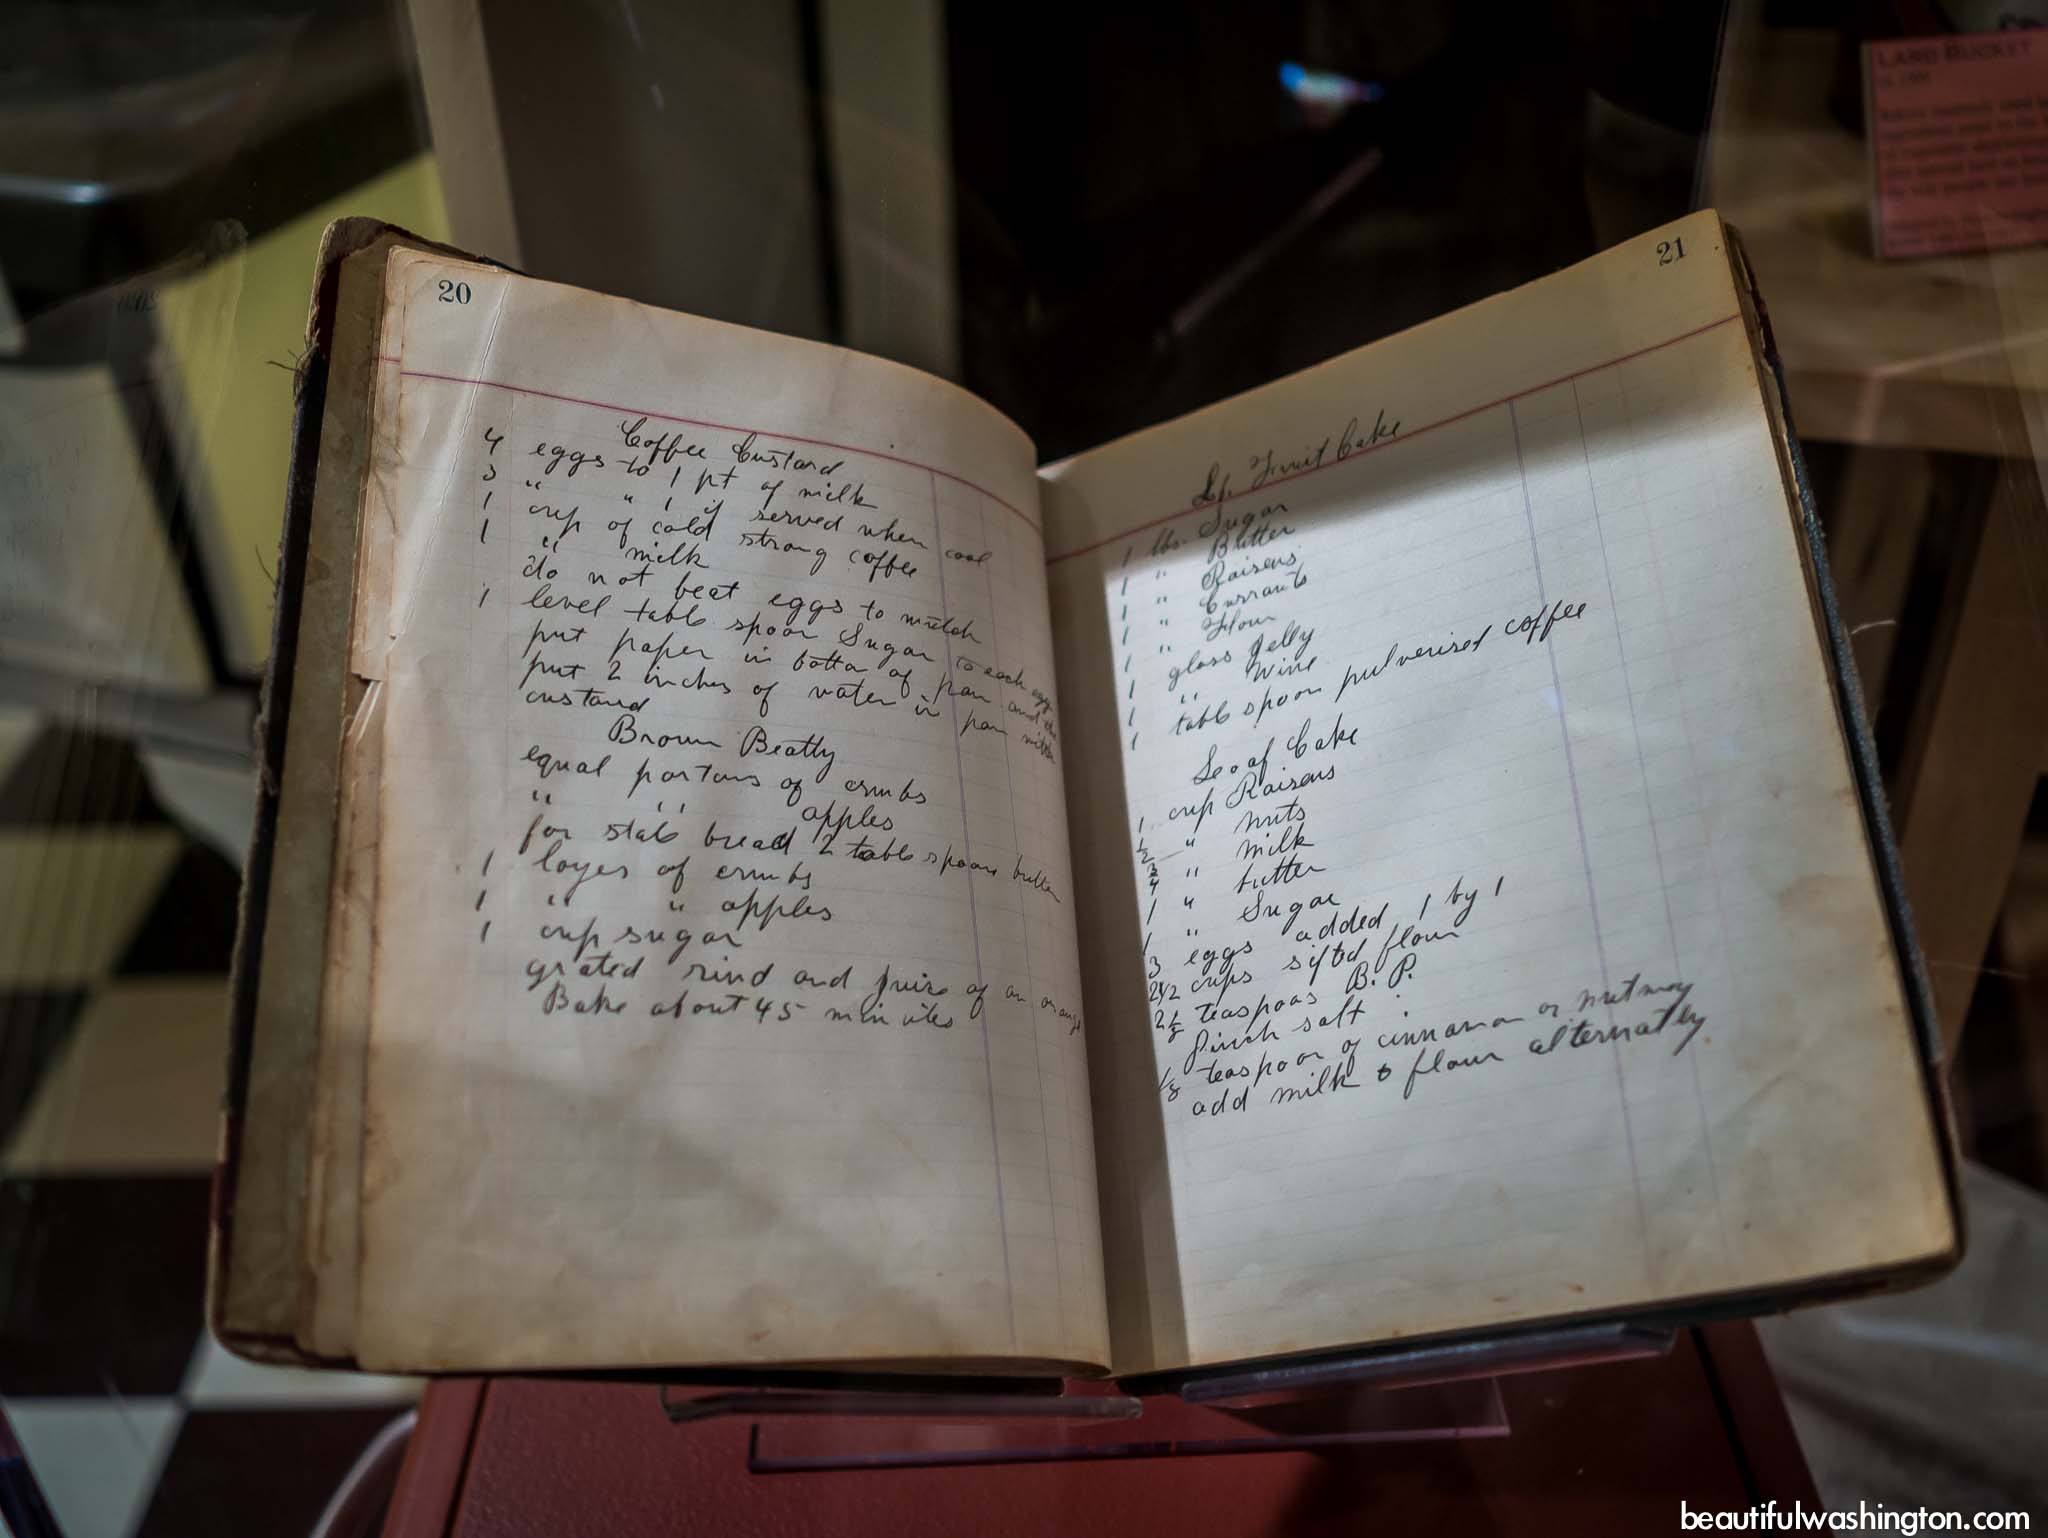 20
Coffee Custard
4 eggs to 1 pt of milk
3 " " 1 if served when cool
1 cup of cold strong coffee
1 " milk
do not beat eggs to mutch
1 level table spoon Sugar to each egg
put paper in bottom of pan and
put 2 inches of water in pan with
custard
Brown Beatty
equal portons of crmbs
" " apples
for stale bread 2 table spoons butter
1 layer of crmbs
1 " " apples
1 cup sugar
grated rind and juice of an orange
Bake about 45 minutes
21
Fruit Cake
1 lbs. Sugar
1 " Butter
1 " Raisens
1 " Currants
1 " Flour
1 glass Jelly
1 " Wine
1 table spoon pulverised coffee
Loaf Cake
1 cup Raisens
1/2 " nuts
3/4 " milk
1 " butter
1 " Sugar
3 eggs added 1 by 1
2 1/2 cups sifted flour
2 1/2 teaspoons B. P.
Pinch salt
1/2 teaspoon of cinnamon or nutmeg
add milk & flour alternatly
LARD BUCKET
beautifulwashington.com